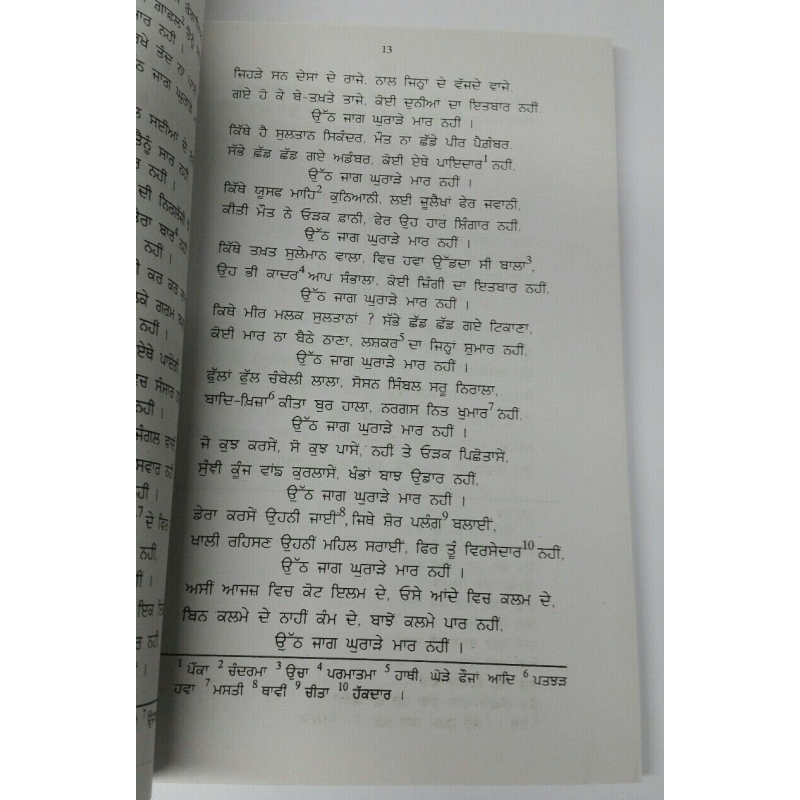 13
ਜਿਹੜੇ ਸਨ ਦੇਸਾ ਦੇ ਰਾਜੇ, ਨਾਲ ਜਿਨ੍ਹਾਂ ਦੇ ਵੱਜਦੇ ਵਾਜੇ.
ਗਏ ਹੋ ਕੇ ਬੇ-ਤਖ਼ਤੇ ਤਾਜੇ, ਕੋਈ ਦੁਨੀਆਂ ਦਾ ਇਤਬਾਰ ਨਹੀਂ.
ਉੱਠ ਜਾਗ ਘੁਰਾੜੇ ਮਾਰ ਨਹੀਂ ।
ਕਿੱਥੇ ਹੈ ਸੁਲਤਾਨ ਸਿਕੰਦਰ, ਮੌਤ ਨਾ ਛੱਡੇ ਪੀਰ ਪੈਗੰਬਰ.
ਸੱਭੇ ਛੱਡ ਛੱਡ ਗਏ ਅਡੰਬਰ, ਕੋਈ ਏਥੇ ਪਾਇਦਾਰ¹ ਨਹੀਂ.
ਉੱਠ ਜਾਗ ਘੁਰਾੜੇ ਮਾਰ ਨਹੀਂ ।
ਕਿੱਥੇ ਯੂਸਫ ਮਾਹਿ² ਕੁਨਿਆਨੀ, ਲਈ ਜ਼ੁਲੈਖਾਂ ਫੇਰ ਜਵਾਨੀ,
ਕੀਤੀ ਮੌਤ ਨੇ ਓੜਕ ਫ਼ਾਨੀ, ਫੇਰ ਉਹ ਹਾਰ ਸ਼ਿੰਗਾਰ ਨਹੀਂ.
ਉੱਠ ਜਾਗ ਘੁਰਾੜੇ ਮਾਰ ਨਹੀਂ ।
ਕਿੱਥੇ ਤਖ਼ਤ ਸੁਲੇਮਾਨ ਵਾਲਾ, ਵਿਚ ਹਵਾ ਉੱਡਦਾ ਸੀ ਬਾਲਾ³,
ਉਹ ਭੀ ਕਾਦਰ⁴ ਆਪ ਸੰਭਾਲਾ, ਕੋਈ ਜ਼ਿੰਗੀ ਦਾ ਇਤਬਾਰ ਨਹੀਂ.
ਉੱਠ ਜਾਗ ਘੁਰਾੜੇ ਮਾਰ ਨਹੀਂ ।
ਕਿਥੇ ਮੀਰ ਮਲਕ ਸੁਲਤਾਨਾਂ ? ਸੱਭੇ ਛੱਡ ਛੱਡ ਗਏ ਟਿਕਾਣਾ,
ਕੋਈ ਮਾਰ ਨਾ ਬੈਠੇ ਠਾਣਾ, ਲਸ਼ਕਰ⁵ ਦਾ ਜਿਨ੍ਹਾਂ ਸ਼ੁਮਾਰ ਨਹੀਂ.
ਉੱਠ ਜਾਗ ਘੁਰਾੜੇ ਮਾਰ ਨਹੀਂ ।
ਫੁੱਲਾਂ ਫੁੱਲ ਚੰਬੇਲੀ ਲਾਲਾ, ਸੋਸਨ ਸਿੰਬਲ ਸਰੂ ਨਿਰਾਲਾ,
ਬਾਦਿ-ਖ਼ਿਜ਼ਾ⁶ ਕੀਤਾ ਬੁਰ ਹਾਲਾ, ਨਰਗਸ ਨਿਤ ਖ਼ੁਮਾਰ⁷ ਨਹੀਂ.
ਉੱਠ ਜਾਗ ਘੁਰਾੜੇ ਮਾਰ ਨਹੀਂ ।
ਜੋ ਕੁਝ ਕਰਸੇਂ, ਸੋ ਕੁਝ ਪਾਸੇਂ, ਨਹੀਂ ਤੇ ਓੜਕ ਪਿਛੋਤਾਸੇਂ,
ਸੁੰਞੀ ਕੂੰਜ ਵਾਂਙ ਕੁਰਲਾਸੇਂ, ਖੰਭਾਂ ਬਾਝ ਉਡਾਰ ਨਹੀਂ.
ਉੱਠ ਜਾਗ ਘੁਰਾੜੇ ਮਾਰ ਨਹੀਂ ।
ਡੇਰਾ ਕਰਸੇਂ ਉਹਨੀ ਜਾਈਂ⁸, ਜਿਥੇ ਸ਼ੇਰ ਪਲੰਗ⁹ ਬਲਾਈਂ,
ਖਾਲੀ ਰਹਿਸਣ ਉਹਨੀਂ ਮਹਿਲ ਸਰਾਈਂ, ਫਿਰ ਤੂੰ ਵਿਰਸੇਦਾਰ¹⁰ ਨਹੀਂ,
ਉੱਠ ਜਾਗ ਘੁਰਾੜੇ ਮਾਰ ਨਹੀਂ ।
ਅਸੀਂ ਆਜਜ਼ ਵਿਚ ਕੋਟ ਇਲਮ ਦੇ, ਓਸੇ ਆਂਦੇ ਵਿਚ ਕਲਮ ਦੇ,
ਬਿਨ ਕਲਮੇ ਦੇ ਨਾਹੀਂ ਕੰਮ ਦੇ, ਬਾਝੋਂ ਕਲਮੇ ਪਾਰ ਨਹੀਂ,
ਉੱਠ ਜਾਗ ਘੁਰਾੜੇ ਮਾਰ ਨਹੀਂ ।
¹ ਪੱਕਾ ² ਚੰਦਰਮਾ ³ ਉਚਾ ⁴ ਪਰਮਾਤਮਾ ⁵ ਹਾਥੀ, ਘੋੜੇ ਫੌਜਾਂ ਆਦਿ ⁶ ਪਤਝੜ
ਹਵਾ ⁷ ਮਸਤੀ ⁸ ਥਾਵੀਂ ⁹ ਚੀਤਾ ¹⁰ ਹੱਕਦਾਰ ।